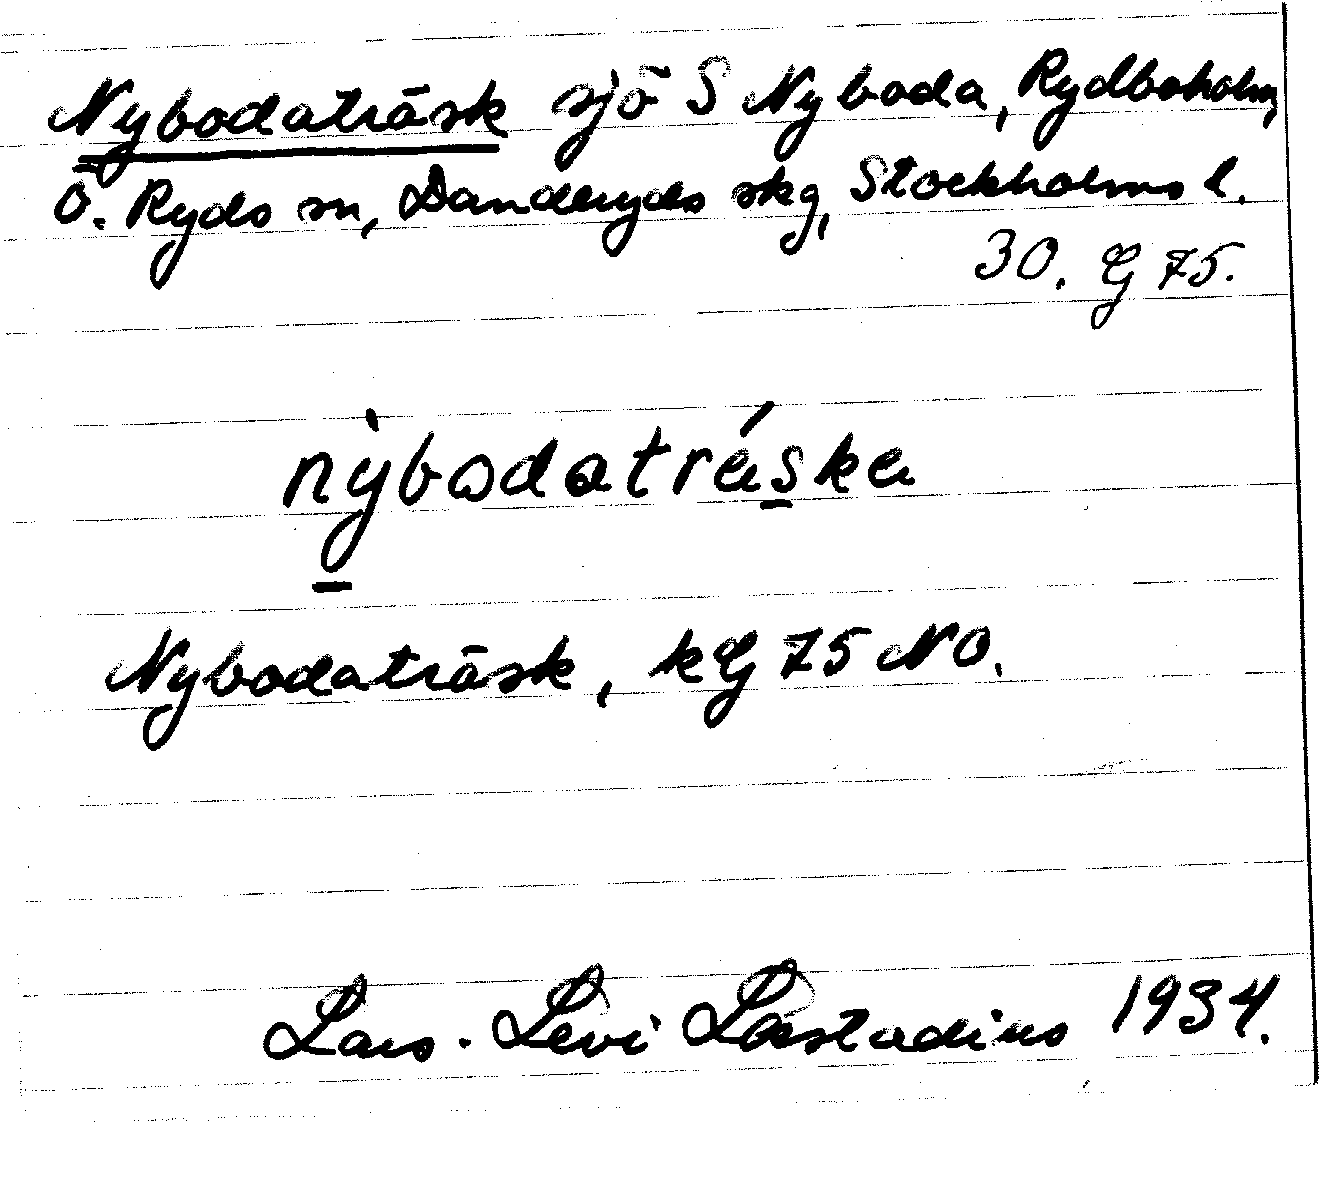 Nybodaträsk sjö S Nyboda, Rydboholm,
Ö. Ryds sn, Danderyds skg, Stockholms l.
30. G 75.
nỳbodatráska
Nybodaträsk, kG 75 NO.
Lars-Levi Læstadius 1934.